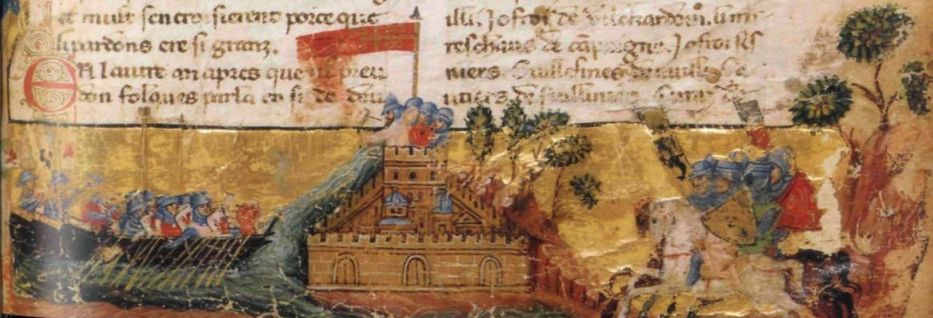 et mult sen croisierent porce que
li pardons ere si granz.
En lautre an apres que preu
don folques parla en si de deu
illi. Jofroi de Vilehardoin. li m
reschaus de cãpaigne. Jofrois
niers. Guillelmes de nuilli
utiers de